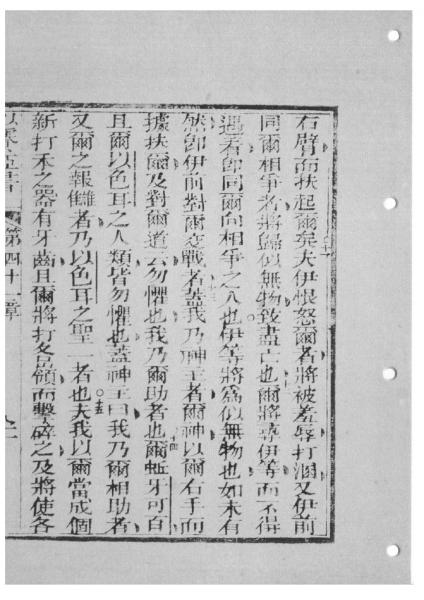 右臂而扶起爾矣夫伊恨怒爾者將被羞辱打溷又伊前
同爾相爭者將歸似無物致盡亡也爾將尋伊等而不得
遇着卽同爾向相爭之人也伊等將爲似無物也如未有
然卽伊前對爾交戰者蓋我乃神主者爾神以爾右手而
據扶爾及對爾道云勿懼也我乃爾助者也爾蚯牙可百
且爾以色耳之人類皆勿懼也蓋神主曰我乃爾相助者
又爾之報讎者乃以色耳之聖一者也夫我以爾當成個
新打禾之器有牙齒且爾將打各嶺而擊碎之及將使各
第四十一章